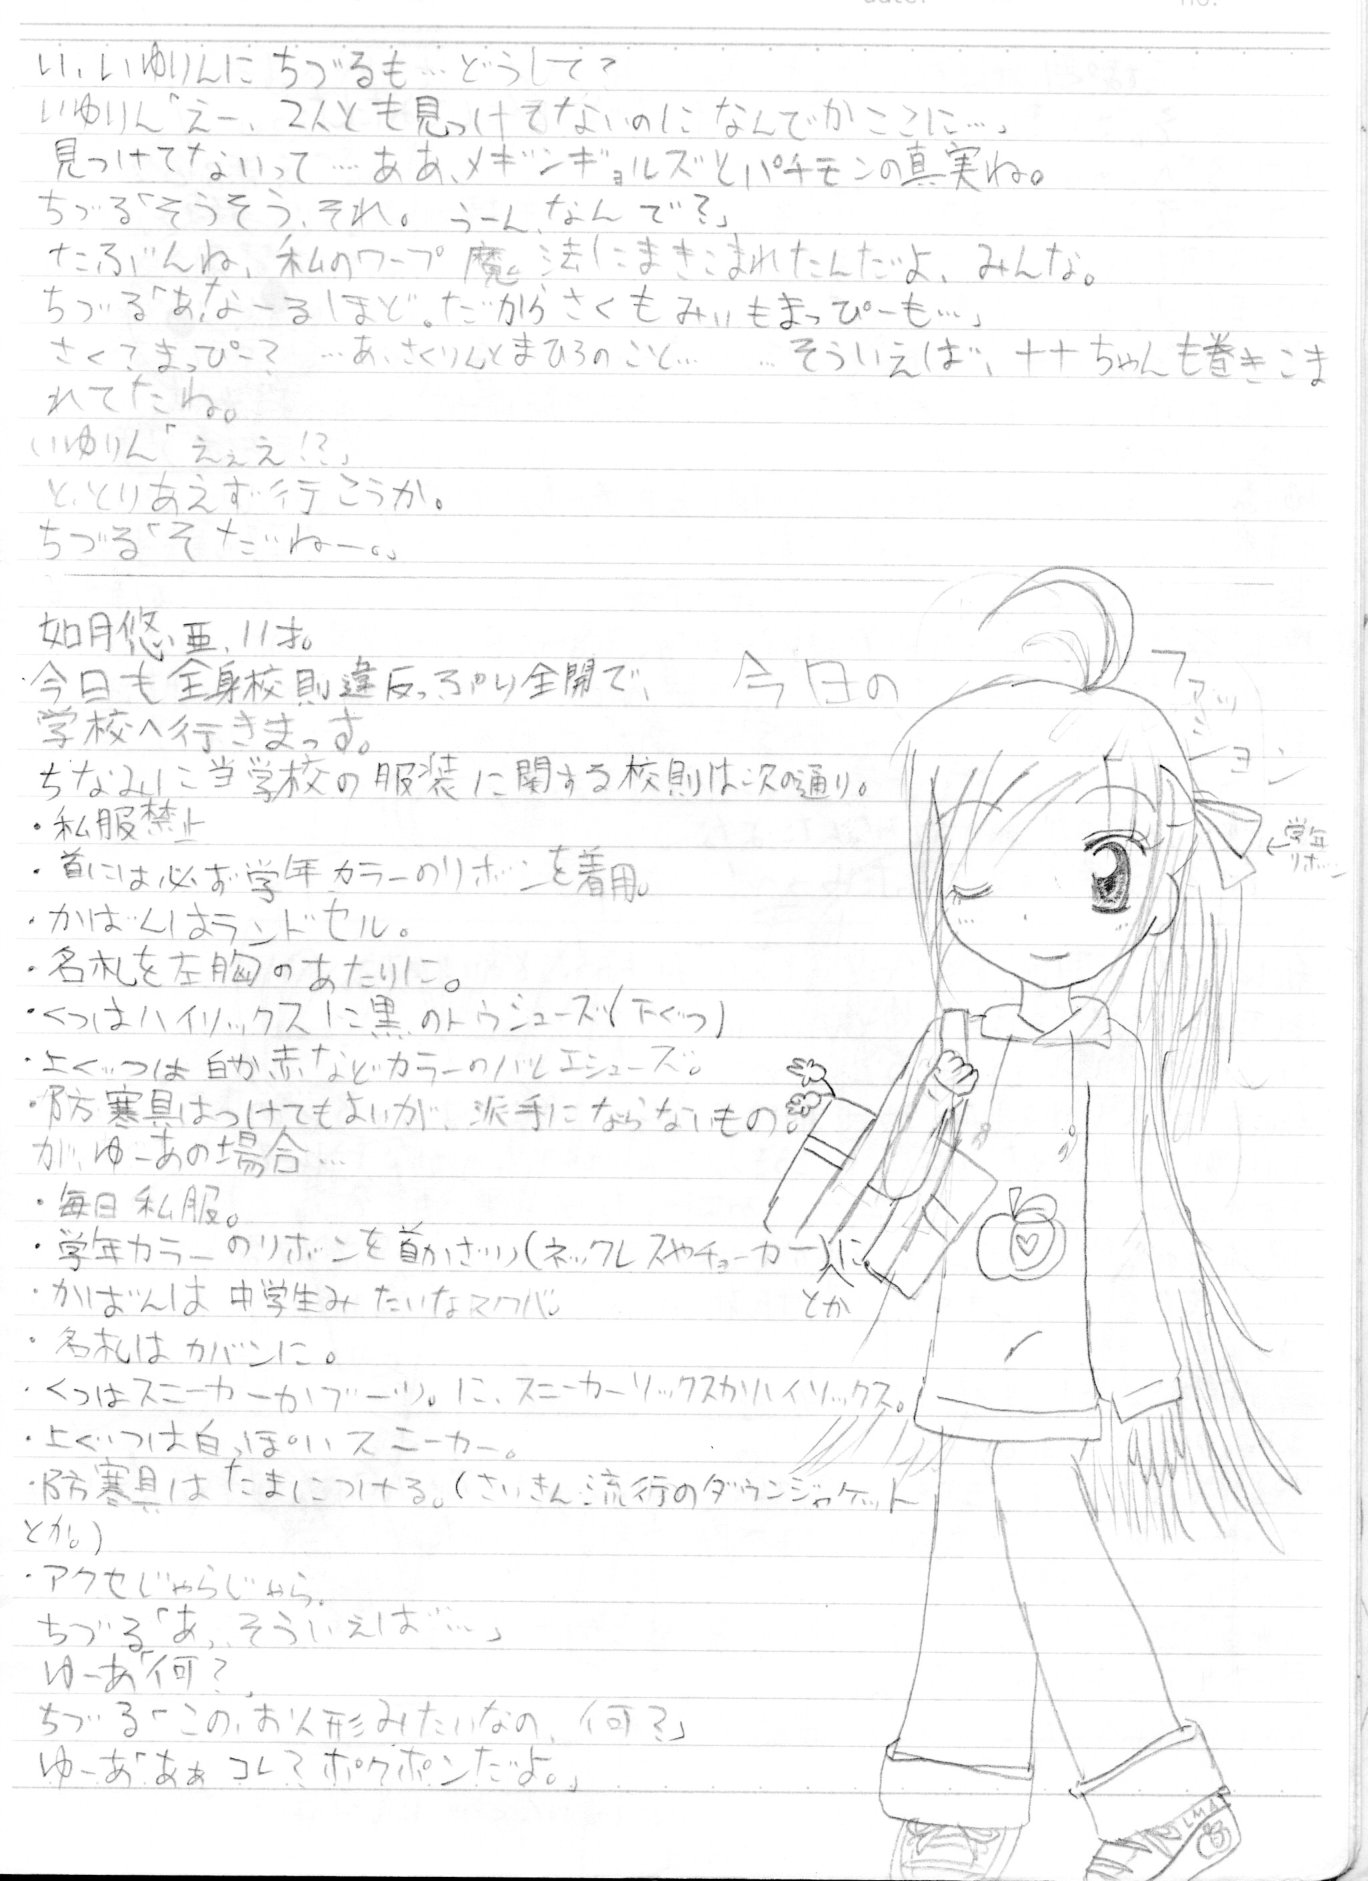 い、いゆりんにちづるも…どうして？
いゆりん「えー、2人とも見つけてないのになんでかここに…」
見つけてないって…ああ、メギンギョルズとパチモンの真実ね。
ちづる「そうそう、それ。うーん、なんで？」
たぶんね、私のワープ魔法にまきこまれたんだよ、みんな。
ちづる「あ、なーるほど。だからさくもみぃもまっぴーも…」
さく？まっぴー？…あ、さくりんとまひろのこと… …そういえば、ナナちゃんも巻きこま
れてたね。
いゆりん「えぇえ！？」
と、とりあえず行こうか。
ちづる「そだねー。」
如月悠亜、11才。
今日も全身校則違反っぷり全開で、
学校へ行きまっす。
ちなみに当学校の服装に関する校則は次の通り。
・私服禁止
・首には必ず学年カラーのリボンを着用。
・かばんはランドセル。
・名札を左胸のあたりに。
・くつはハイソックスに黒のトウシューズ(下ぐつ)
・上ぐつは白か赤などカラーのバレエシューズ。
・防寒具はつけてもよいが、派手にならないもの。
が、ゆーあの場合…
・毎日私服。
・学年カラーのリボンを首かざり(ネックレスやチョーカー)に
とか
・かばんは中学生みたいなスクバ。
・名札はカバンに。
・くつはスニーカーかブーツ。に、スニーカーソックスかハイソックス。
・上ぐつは白っぽいスニーカー。
・防寒具はたまにつける。(さいきん流行のダウンジャケット
とか。)
・アクセじゃらじゃら。
ちづる「あ、そういえば…」
ゆーあ「何？」
ちづる「この、お人形みたいなの、何？」
ゆーあ「あぁコレ？ポケポンだよ。」
今日の
ファッション
←学年
リボン
LMA